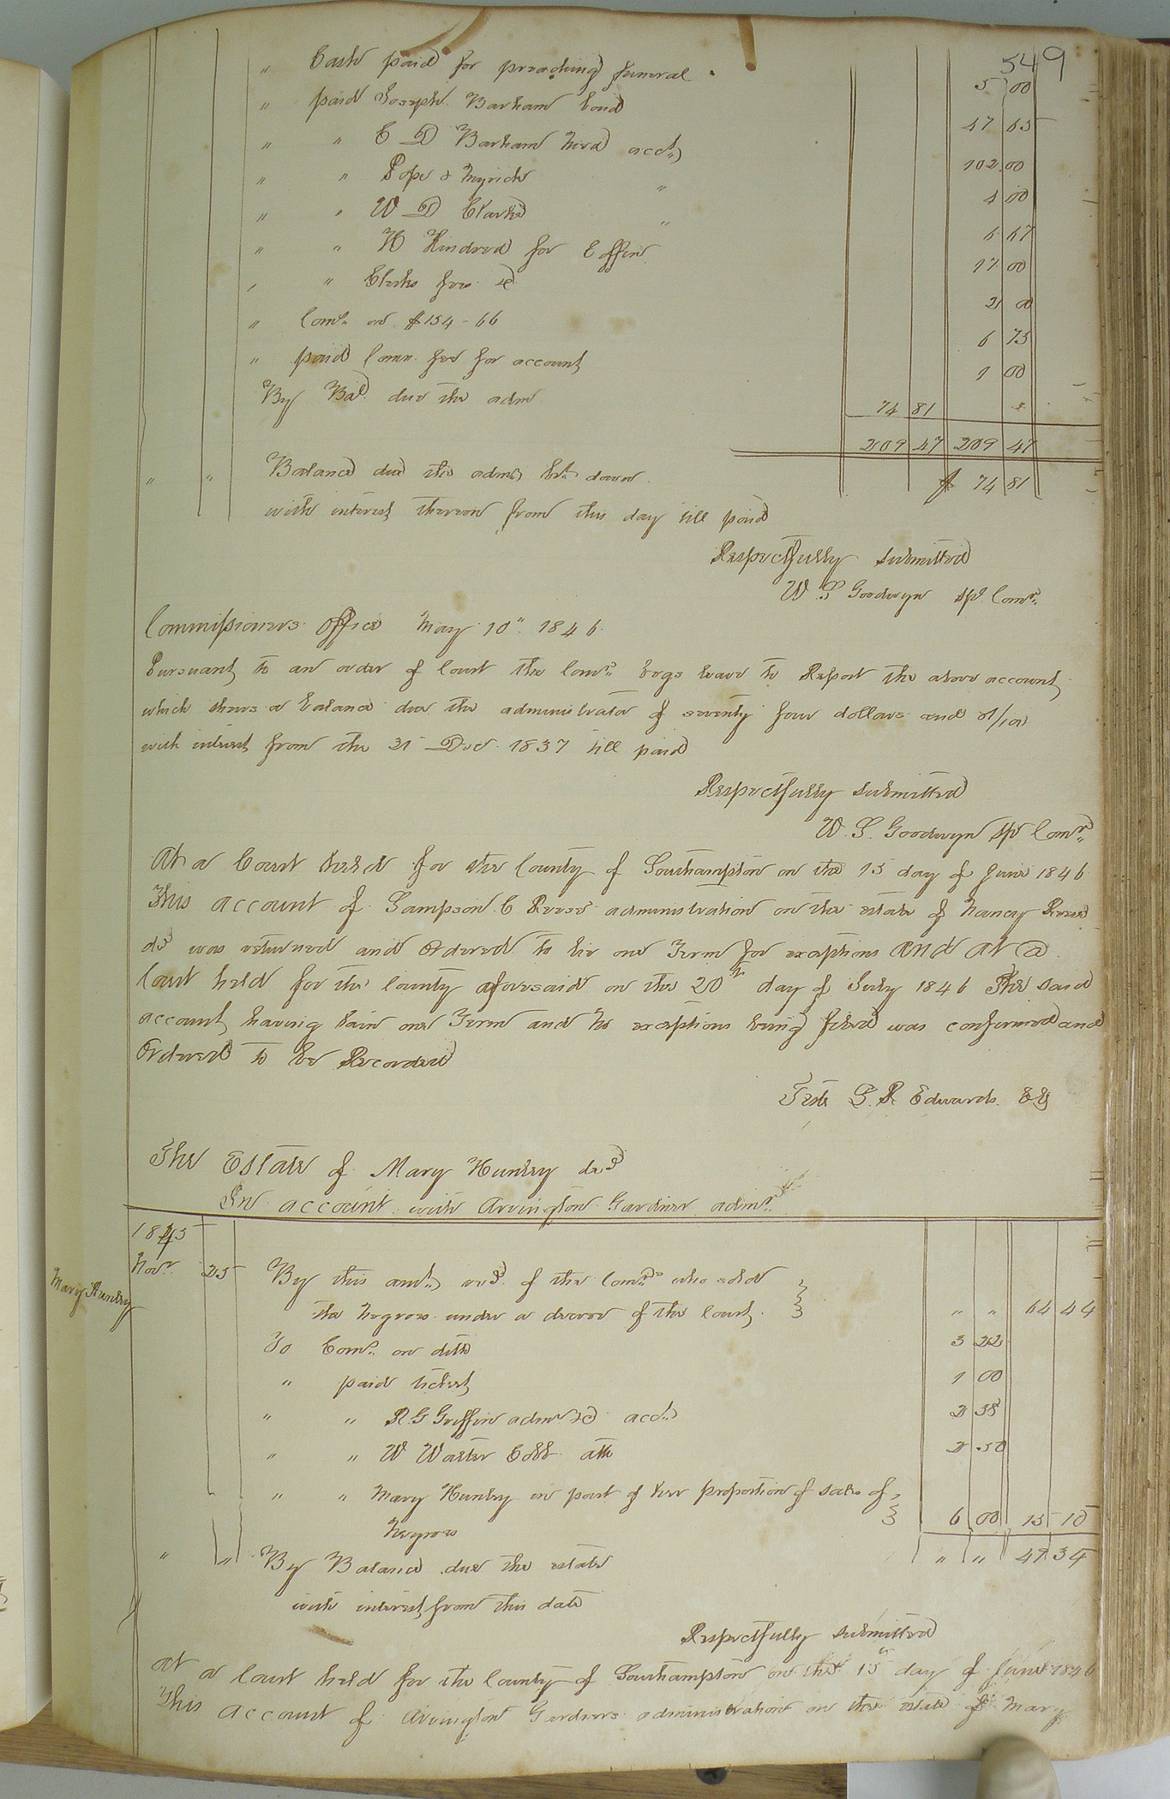 549
" Cash paid for preaching funeral . 5 00
" paid Joseph Barham bond 47 65
" " C D Barham Med acct. 102.00
" " Pope & Myrick " 4 00
" " W D Clark "
" " H Kindred for Coffin 17 00
" " Clerks fees &c 2 00
" Comn. on $134-66 6 73
" paid Comr. fee for account 1 00
By Bal. due the adm 74 81
209 47 209 47
" " Balance due the admr bt. down $ 74 81
with interest thereon from this day till paid
Respectfully submitted
W S Goodwyn spl Comr.
Commissioners Office May 10" 1846
Pursuant to an order of Court the Comr. begs leave to Report the above account
which shews a balance due the administrator of seventy four dollars and 81/100
with interest from the 31 Dec 1837 till paid
Respectfully submitted
W. S. Goodwyn spl Comr.
At a Court held for the County of Southampton on the 15 day of June 1846
This account of Sampson C Reese administration on the estate of Nancy Reese
decd was returned and Ordered to lie one Term for exceptions And At a
Court held for the County aforesaid on the 20th day of July 1846 The said
account having lain one Term and No exceptions being filed was confirmed and
Ordered to be Recorded
Teste L. R. Edwards CC
The Estate of Mary Huntley decd
In account with Arvington Gardner admr.
1845
Novr. 25 By this amt. recd. of the Comrs. who sold
Mary Huntley
the negroes under a decree of the Court. " " 64 44
To Comn. on ditto 3 22
" paid ticket 1 00
" " R. G Griffin admr &c acct. 2 38
" " W Walter Cobb atto 2 50
" " Mary Huntley in part of her proportion of sale of
negroes 6 00 15 10
" " By Balance due the estate " " 47 34
with interest from this date
Respectfully submitted
At a Court held for the County of Southampton on the 15th day of June 1846
This account of Arvington Gardners administration on the estate of Mary